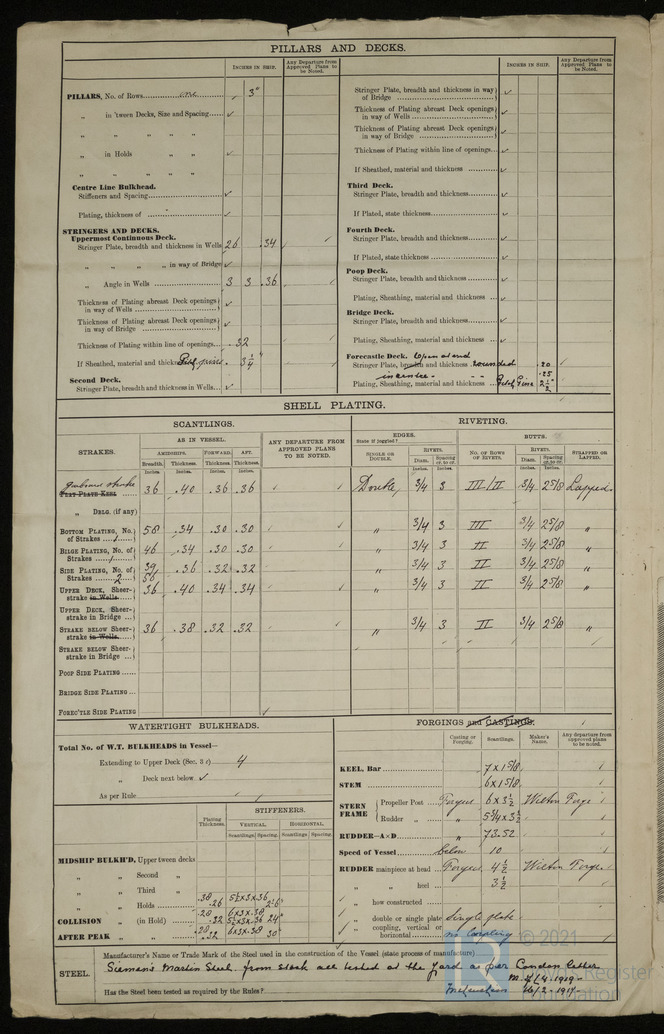 PILLARS AND DECKS.
INCHES IN SHIP.
Any Departure from Approved Plans to be Noted.
INCHES IN SHIP.
Any Departure from Approved Plans to be Noted.
PILLARS, No. of Rows one 3"
„ in 'tween Decks, Size and Spacing ✓
„ „ „ „
„ in Holds „ „ ✓
„ „ „ „
Centre Line Bulkhead.
Stiffeners and Spacing ✓
Plating, thickness of ✓
STRINGERS AND DECKS.
Uppermost Continuous Deck.
Stringer Plate, breadth and thickness in Wells 26 .34
„ „ „ „ in way of Bridge ✓
„ Angle in Wells 3 3 .36
Thickness of Plating abreast Deck openings in way of Wells ✓
Thickness of Plating abreast Deck openings in way of Bridge ✓
Thickness of Plating within line of openings .32
If Sheathed, material and thickness Pitch pine 3 1/4"
Second Deck.
Stringer Plate, breadth and thickness in Wells ✓
Stringer Plate, breadth and thickness in way of Bridge ✓
Thickness of Plating abreast Deck openings in way of Wells ✓
Thickness of Plating abreast Deck openings in way of Bridge ✓
Thickness of Plating within line of openings ✓
If Sheathed, material and thickness ✓
Third Deck.
Stringer Plate, breadth and thickness ✓
If Plated, state thickness ✓
Fourth Deck.
Stringer Plate, breadth and thickness ✓
If Plated, state thickness ✓
Poop Deck.
Stringer Plate, breadth and thickness ✓
Plating, Sheathing, material and thickness ✓
Bridge Deck.
Stringer Plate, breadth and thickness ✓
Plating, Sheathing, material and thickness ✓
Forecastle Deck. Open at end
Stringer Plate, breadth and thickness rounded .20
.25
Plating, Sheathing, material and thickness Pitch Pine 2 1/2"
SHELL PLATING.
SCANTLINGS.
RIVETING.
STRAKES.
AS IN VESSEL.
AMIDSHIPS. FORWARD. AFT.
Breadth. Thickness. Thickness. Thickness.
Inches. Inches. Inches. Inches.
ANY DEPARTURE FROM APPROVED PLANS TO BE NOTED.
EDGES.
State if joggled?
SINGLE OR DOUBLE.
RIVETS.
Diam. Spacing cr. to cr.
Inches. Inches.
NO. OF ROWS OF RIVETS.
BUTTS.
RIVETS.
Diam. Spacing cr. to cr.
Inches. Inches.
STRAPPED OR LAPPED.
garboard strake
FLAT PLATE KEEL 36 .40 .36 .36 Double, 3/4 3 III/II 3/4 2 5/8 Lapped
„ DBLG. (if any)
BOTTOM PLATING, No. of Strakes 1 58 .34 .30 .30 „ 3/4 3 III 3/4 2 5/8 „
BILGE PLATING, No. of Strakes 1 46 .34 .30 .30 „ 3/4 3 II 3/4 2 5/8 „
SIDE PLATING, No. of Strakes 2 39 .36 .32 .32 „ 3/4 3 II 3/4 2 5/8 „
UPPER DECK, Sheerstrake in Wells 36 .40 .34 .34 „ 3/4 3 II 3/4 2 5/8 „
UPPER DECK, Sheerstrake in Bridge
STRAKE BELOW Sheerstrake in Wells 36 .38 .32 .32 „ 3/4 3 II 3/4 2 5/8 „
STRAKE BELOW Sheerstrake in Bridge
POOP SIDE PLATING
BRIDGE SIDE PLATING
FOREC'TLE SIDE PLATING ✓
WATERTIGHT BULKHEADS.
Total No. of W.T. BULKHEADS in Vessel—
Extending to Upper Deck (Sec. 3 c) 4
„ Deck next below ✓
As per Rule
Plating Thickness.
STIFFENERS.
VERTICAL. HORIZONTAL.
Scantlings. Spacing. Scantlings. Spacing.
MIDSHIP BULKH'D, Upper tween decks
„ „ Second „
„ „ Third „
„ „ Holds .38 .26 5½x3x.36 2'6"
COLLISION „ (in Hold) .20 .32 6x3x.38 5½x3x.36 24"
AFTER PEAK „ „ .20 .32 6x3x.38 30"
FORGINGS and CASTINGS.
Casting or Forging. Scantlings. Maker's Name. Any departure from approved plans to be noted.
KEEL, Bar 7 x 1 5/8
STEM 6 x 1 5/8
STERN FRAME
Propeller Post Forged 6 x 3 1/2 Wilton Forge
Rudder „ „ 5 3/4 x 3 1/2
RUDDER—A×D „ 73.52
Speed of Vessel below 10
RUDDER mainpiece at head Forged 4 1/2 Wilton Forge
„ „ heel 3 1/2
„ how constructed
„ double or single plate Single plate
„ coupling, vertical or horizontal no Coupling
STEEL.
Manufacturer's Name or Trade Mark of the Steel used in the construction of the Vessel (state process of manufacture)
Siemans Martin Steel from Stock all tested at the Yard as per London letter
Has the Steel been tested as required by the Rules?
© 2021